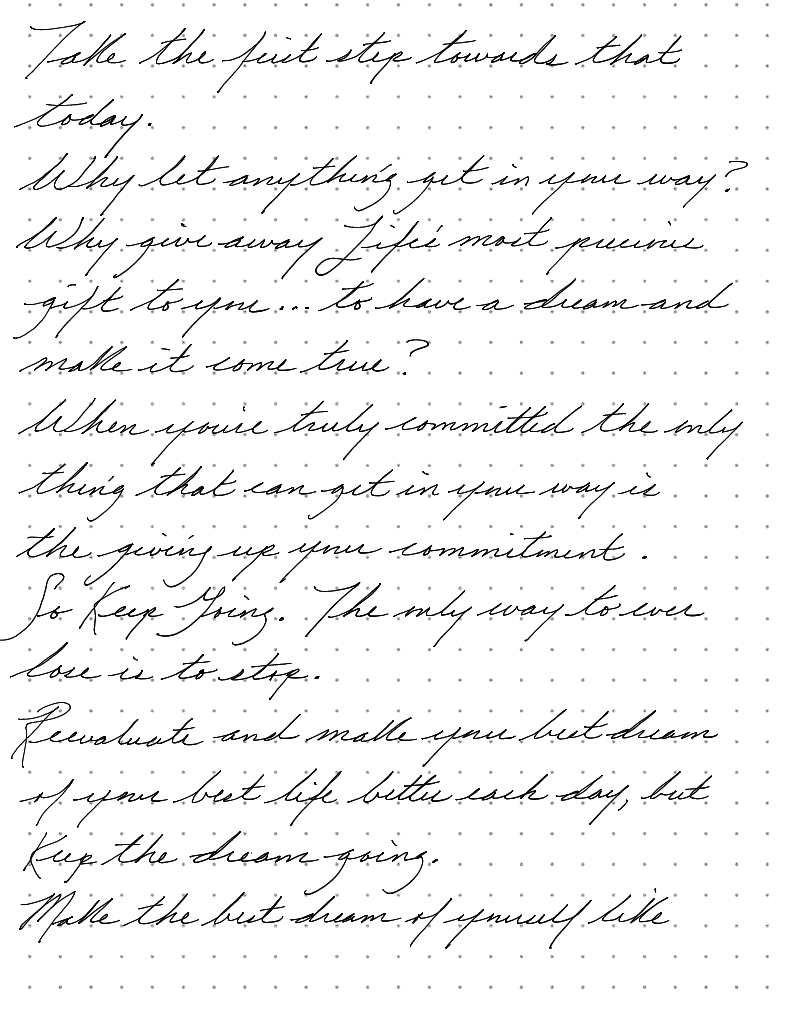 Take the first step towards that
today.
Why let anything get in your way?
Why give away Life's most precious
gift to you... to have a dream and
make it come true?
When you're truly committed the only
thing that can get in your way is
the giving up your commitment .
So Keep Going. The only way to ever
lose is to stop.
Reevaluate and make your best dream
of your best life better each day, but
Keep the dream going.
Make the best dream of yourself like